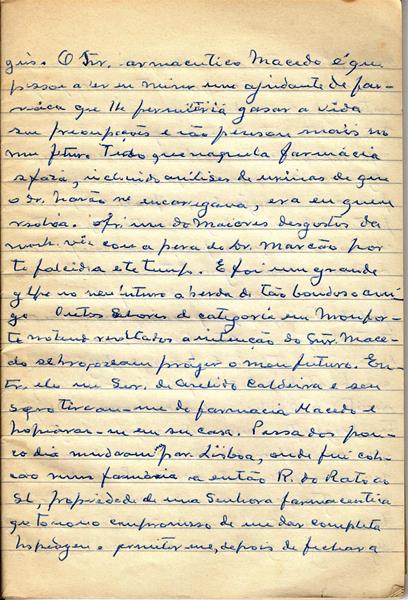 giso. O Snr. farmaceutico Macedo é que
passou a ver em mim um ajudante de far-
mácia que lhe permitiria gosar a vida
sem preocupações e não pensou mais no
meu futuro. Tudo que naquela farmácia
se fazia, incluindo análises de urinas de que
o dr. se encarregava, era eu quem
resolvia. foi um do maiores desgostos da
minha vida com a do Dr. Marcão por
te falecido a este tempo. E foi um grande
golpe no meu futuro a perda de tão bondoso ami-
go. Outros Senhores de categoria em Monfor-
te notando a intenção do Snr. Mace-
do se propozeram proteger o meu futuro. En-
tre eles um Snr. de Caldeira e seu
sogro tiraram-me da farmacia Macedo e
hospedaram-me em sua casa. Passados pou-
co dias mudaram para Lisboa, onde fui colo-
cado numa farmácia na então R. do Rato ao
propriedade de uma Senhora farmaceutica
que tomou o compromisso de me dar completa
hospedagem e permitir-me, depois de fechar a